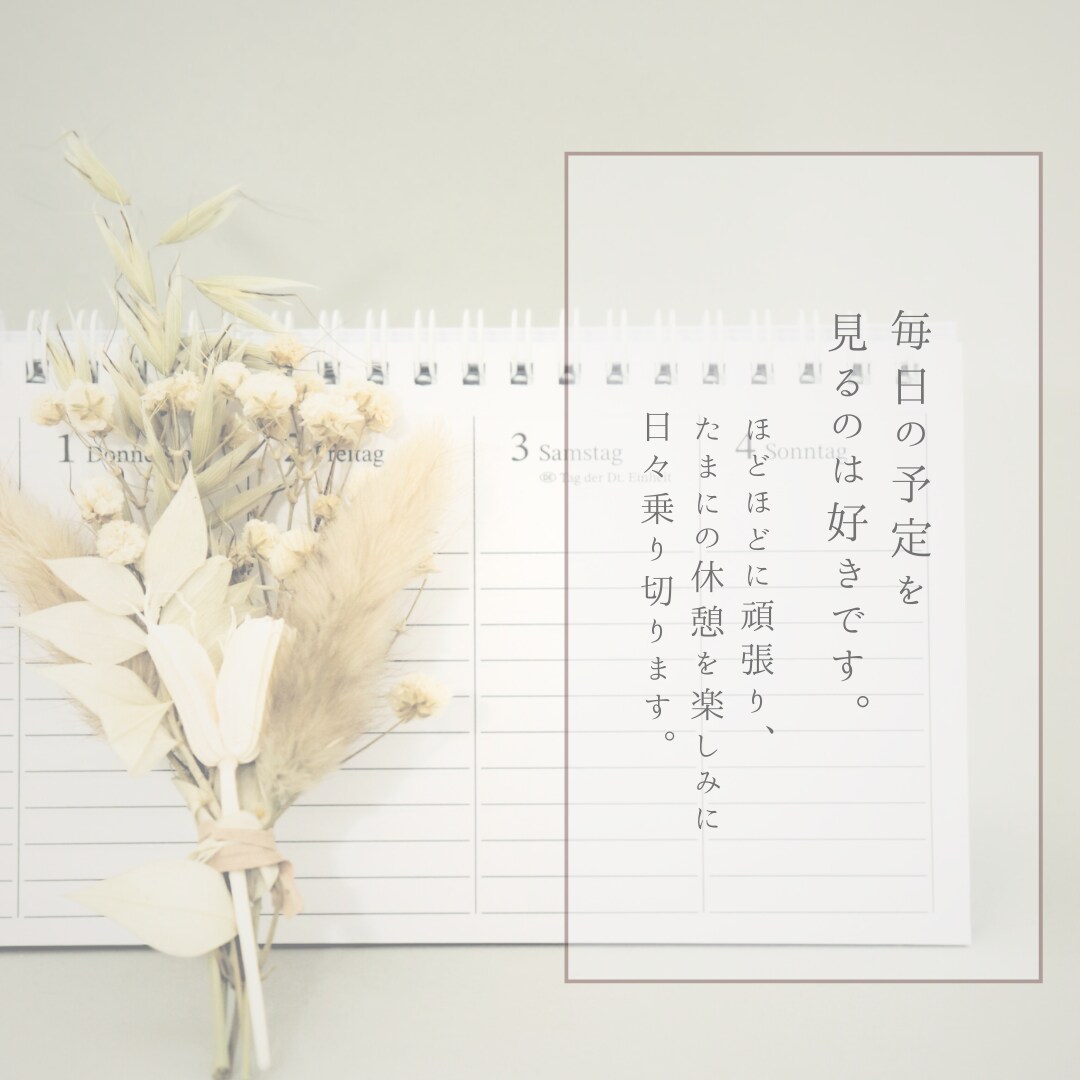 毎日の予定を
見るのは好きです。
ほどほどに頑張り、
たまにの休憩を楽しみに
日々乗り切ります。
1
2 Freitag
3 Samstag
Tag der Dt. Einheit
4 Sonntag